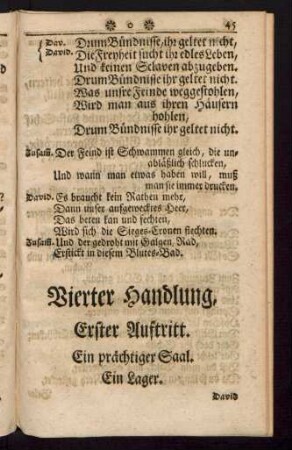 ❋ o ❋ 45
Dav. Drum Bündnisse, ihr geltet nicht,
David. Die Freyheit sucht ihr edles Leben,
Und keinen Sclaven abzugeben.
Drum Bündnisse ihr geltet nicht.
Was unsre Feinde weggestohlen,
Wird man aus ihren Häusern
hohlen,
Drum Bündnisse ihr geltet nicht.
Zusam̃. Der Feind ist Schwammen gleich, die un-
abläßlich schlucken,
Und wann man etwas haben will, muß
man sie immer drucken.
David. Es braucht kein Rathen mehr,
Dann unser aufgewecktes Heer,
Das beten kan und fechten,
Wird sich die Sieges-Cronen flechten.
Zusam̃. Und der gedroht mit Galgen, Rad,
Erstickt in diesem Blutes-Bad.
Vierter Handlung,
Erster Auftritt.
Ein prächtiger Saal.
Ein Lager.
David